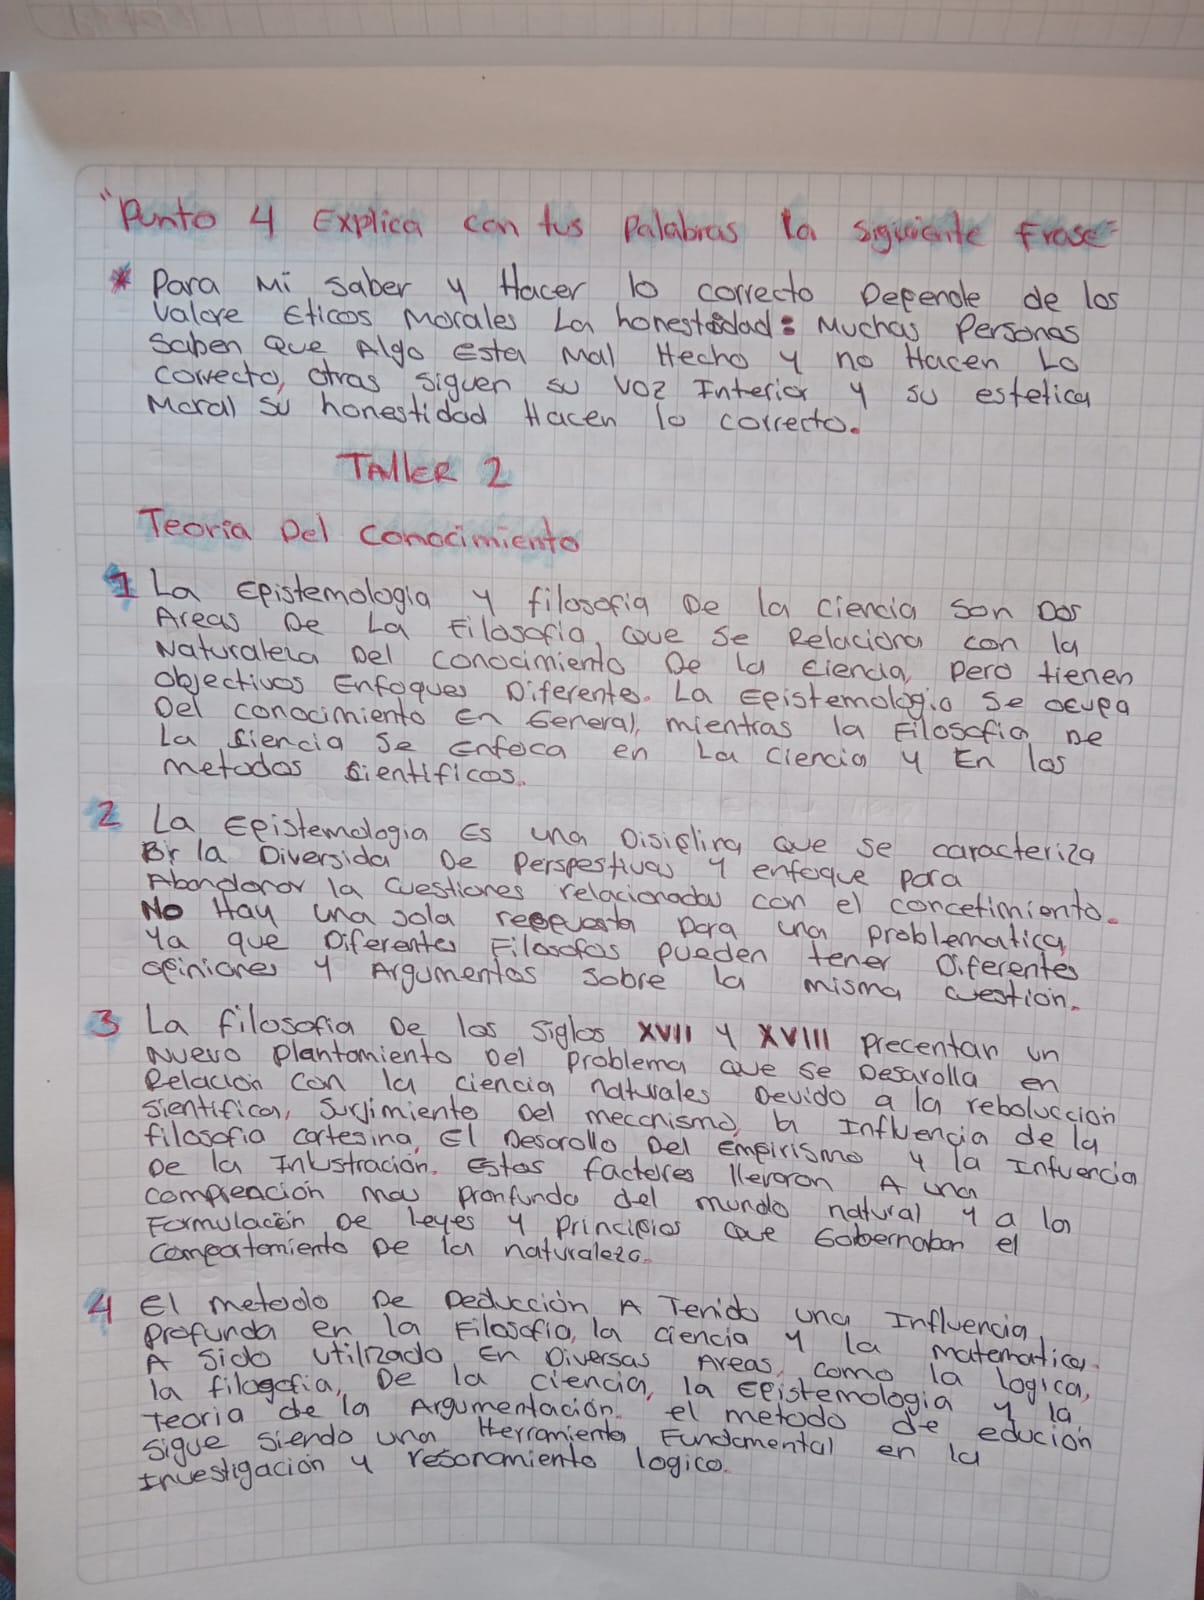 "Punto 4 Explica con tus Palabras la siguiente frase"
* Para Mi saber y Hacer lo correcto Depende de los
Valore Eticos Morales La honestidad: Muchas Personas
Saben Que Algo Esta Mal Hecho y no Hacen Lo
correcto, otras siguen su voz Interior y su estetica
Moral su honestidad Hacen lo correcto.
TAllER 2
Teoria Del Conocimiento
1 La Epistemologia y filosofia De la ciencia son Dos
Areas De La Filosofia, Que Se Relaciona con la
Naturaleza Del conocimiento De la ciencia, Pero tienen
objectivos Enfoques Diferente. La Epistemologia Se ocupa
Del conocimiento en General, mientras la Filosofia De
La siencia Se Enfoca en La ciencia y En los
metodos sientificos.
2 La Epistemologia Es una Disiplina Que se caracteriza
Por la Diversida De Perspestivas y enfoque para
Abondonar la cuestiones relacionadas con el concetimiento.
No Hay una sola respuesta para una problematica,
Ya que Diferentes Filosofos pueden tener Diferentes
opiniones y Argumentos Sobre la misma cuestion.
3 La filosofia De los Siglos XVII y XVIII Precentan un
Nuevo Plantamiento Del Problema Que se Desarolla en
Relacion con la ciencia naturales Devido a la reboluccion
sientifica, Surjimiento Del mecanismo, la Influencia de la
filosofia cartesina, El Desarollo Del Empirismo y la Infuencia
De la Inlustracion. Estos factores llevaron A una
compreación mas pronfunda del mundo natural y a la
Formulación De leyes y principios Que Gobernaban el
Comportamiento De la naturaleza.
4 El metodo De Deducción A Tenido una Influencia
profunda en la Filosofia, la ciencia y la matematica.
A sido utilizado En Diversas Areas, como la logica,
la filosofia, De la ciencia, la Epistemologia y la
teoria de la Argumentación. el metodo de edución
sigue siendo una Herramienta Fundamental en la
Investigación y resonamiento logico.